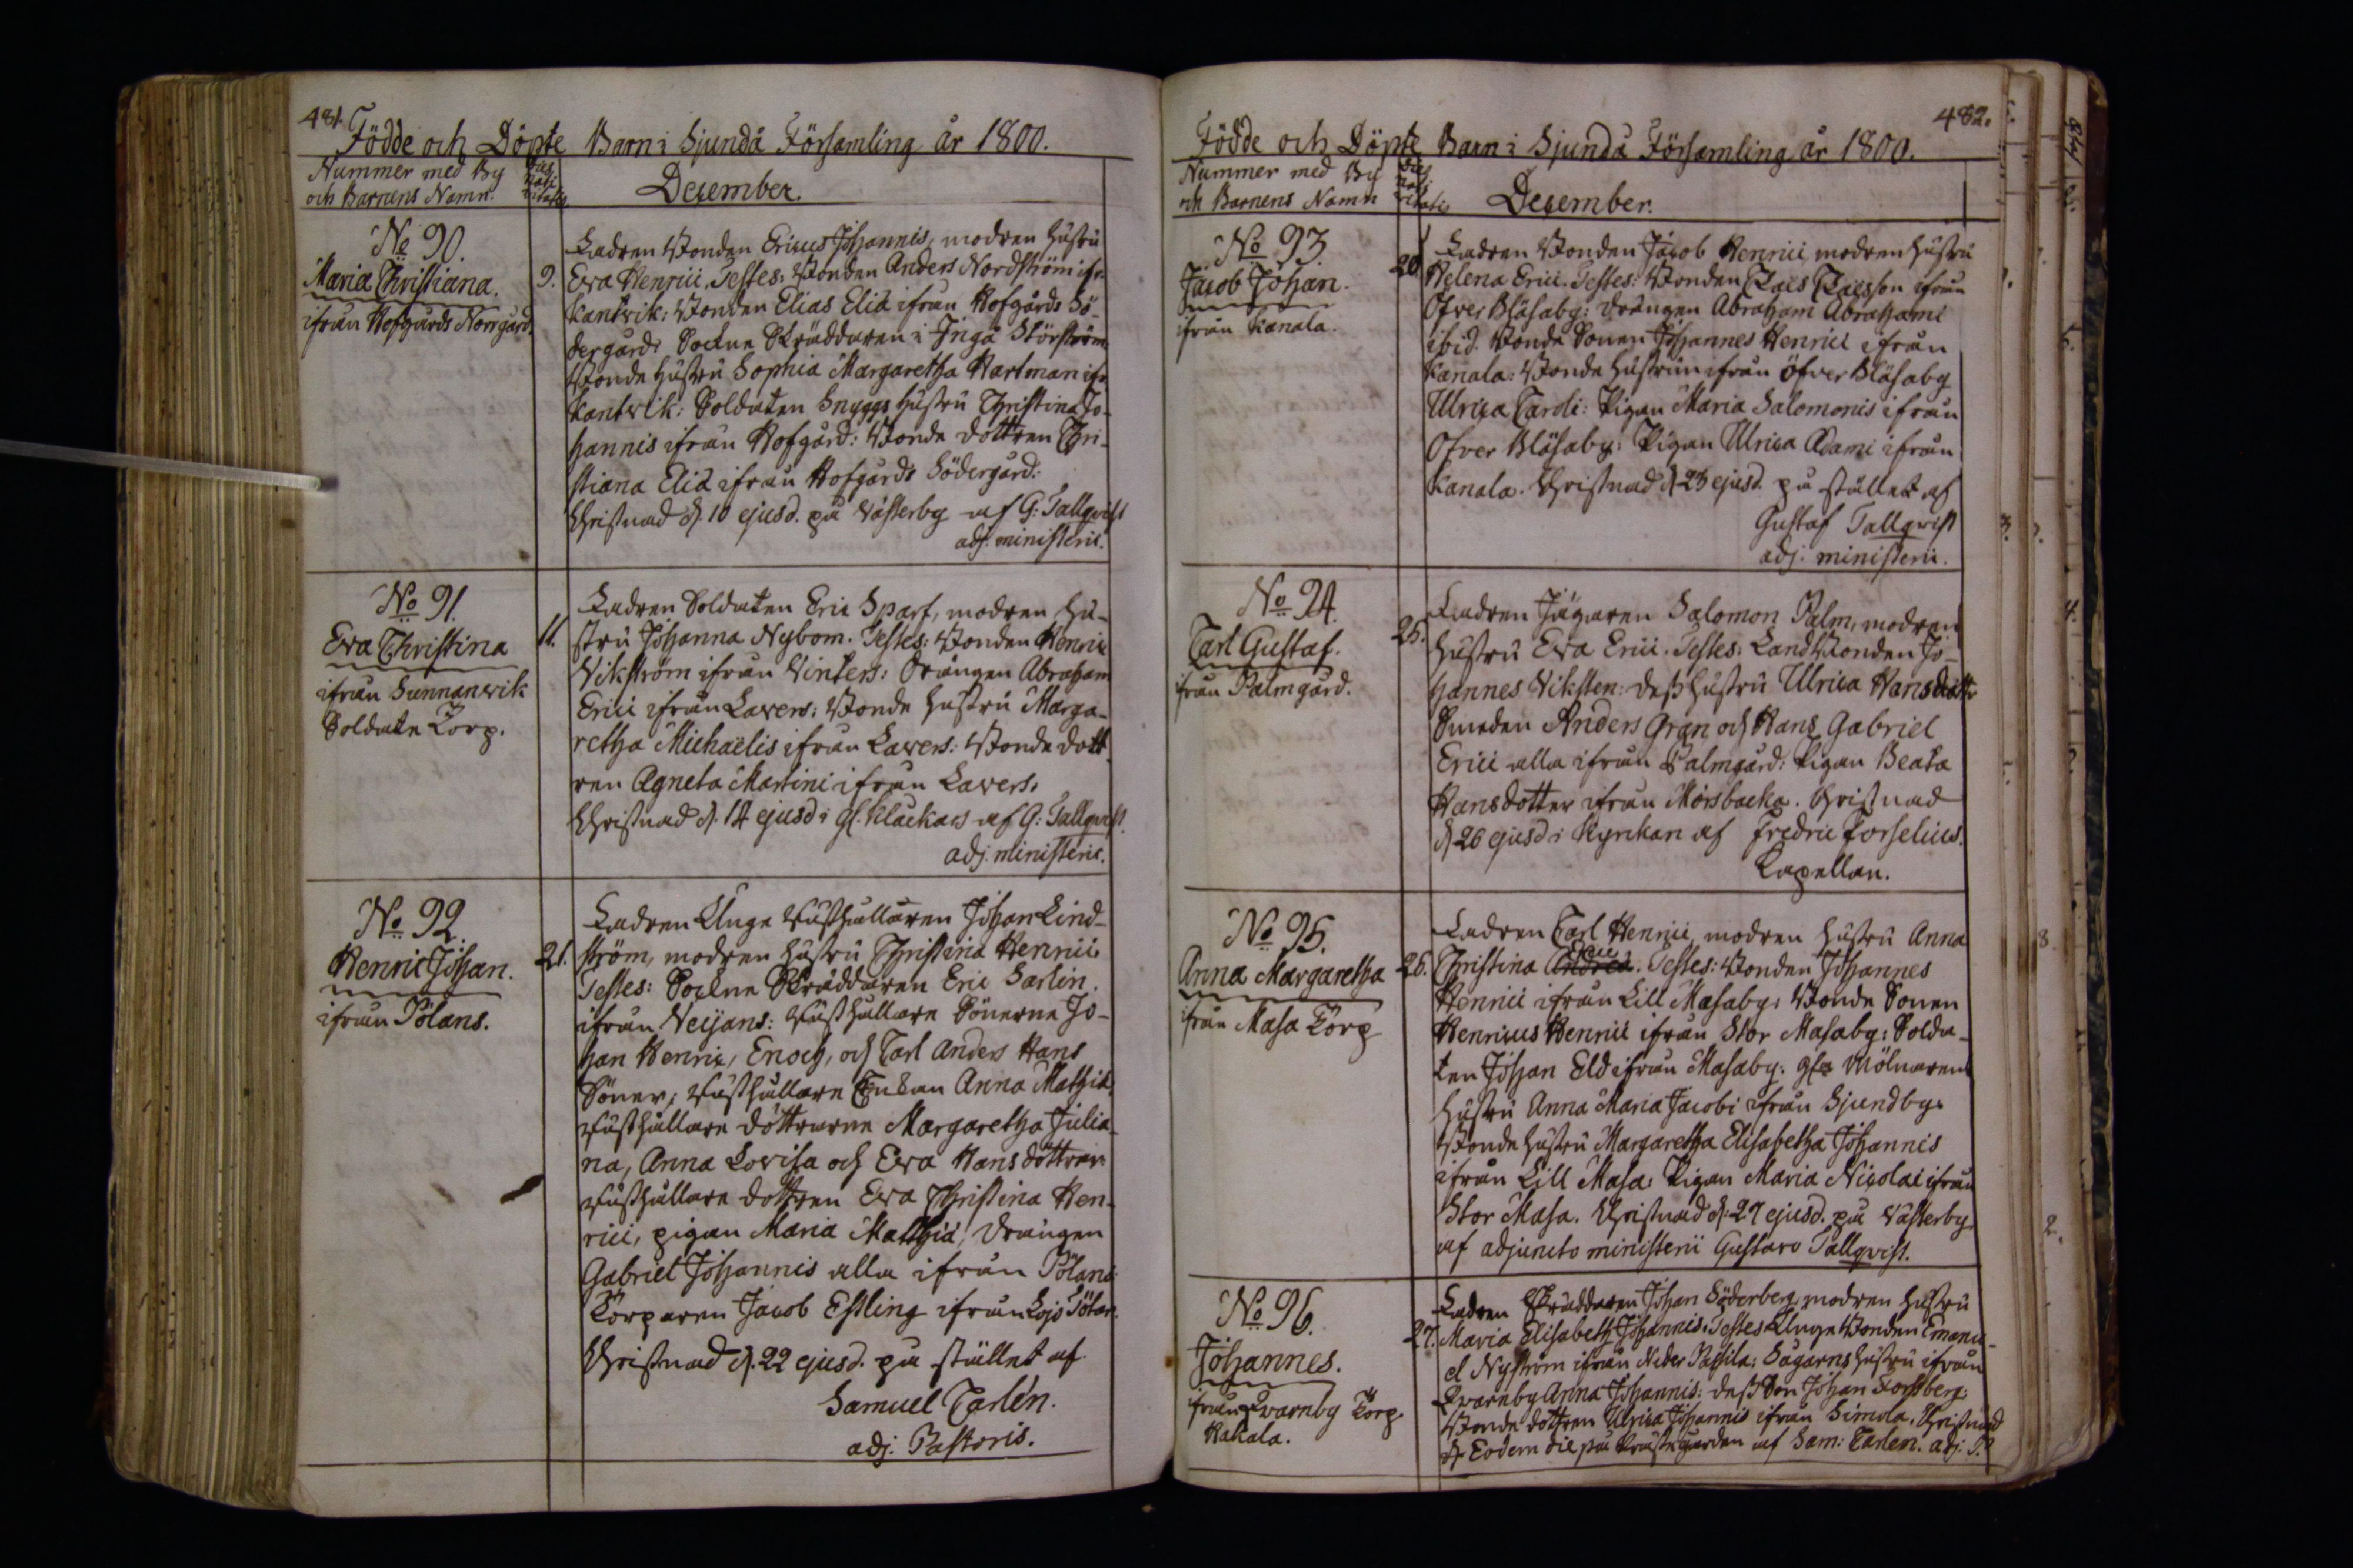 481.
Födde och Döpte Barn i Sjundå Församling år 1800.
Nummer med By
och Barnens Namn.
Dies
nati
vitatis
December.
No 90.
Maria Christiana.
ifrån Hofgårds Norrgård.
9.
Fadren Bonden Ericus Johannis, modren hustru
Eva Henrici. Testes: Bonden Anders Nordström ifr.
Kantvik: Bonden Elias Eliæ ifrån Hofgårds Sö-
dergård: Sockne Skräddaren i Ingå Störström
Bonde hustru Sophia Margaretha Hartman ifr.
Kantvik: Soldaten Snyggs hustru Christina Jo-
hannis ifrån Hofgård: Bonde dottren Chri-
stiana Eliæ ifrån Hofgårds Södergård:
Christnad d. 10 ejusd. på Västerby af G: Tallqvist
adj. ministerii.
No 91.
Eva Christina
ifrån Sunnanvik
Soldate Torp.
11.
Fadren Soldaten Eric Sparf, modren hu-
stru Johanna Nybom. Testes: Bonden Henric
Vikström ifrån Vinters: Drängen Abraham
Erici ifrån Lavers: Bonde hustru Marga-
retha Michaëlis ifrån Lavers: Bonde dott
ren Agneta Martini ifrån Lavers.
Christnad d. 14 ejusd. i Gl. Klackars af G: Tallqvist.
adj. ministerii.
No 92.
Henric Johan.
ifrån Pölans.
21.
Fadren Unge Rusthållaren Johan Lind-
ström, modren hustru Christina Henrici.
Testes: Sockne Skräddaren Eric Sarlin
ifrån Veijans: Rusthållare Sönerne Jo-
han Henric, Enoch, och Carl Anders Hans
Söner; Rusthållare Enkan Anna Mathiæ,
Rusthållare döttrarne Margaretha Julia-
na, Anna Lovisa och Eva Hans döttrar:
Rusthållare dottren Eva Christina Hen-
rici, pigan Maria Matthiæ, drängen
Gabriel Johannis alla ifrån Pölans:
Torparen Jacob Estling ifrån Lojo
Christnad d. 22 ejusd. på stället af
Samuel Carlén.
adj. Pastoris.
482.
Födde och Döpte Barn i Sjundå Församling år 1800.
Nummer med By
och Barnens Namn
Dies
nati
vitatis
December.
No 93.
Jacob Johan.
ifrån Kanala.
20.
Fadren Bonden Jacob Henrici, modren hustru
Helena Erici. Testes: Bonden Claës Claësson ifrån
Öfver Bläsaby: drängen Abraham Abrahami
ibid. Bonde Sonen Johannes Henrici ifrån
Kanala: Bonde hustrun ifrån Öfver Bläsaby
Ulrica Caroli: Pigan Maria Salomonis ifrån
Öfver Bläsaby: Pigan Ulrica Adami ifrån
Kanala. Christnad d. 23 ejusd. på stället af
Gustaf Tallqvist
adj. ministerii.
No 94.
Carl Gustaf.
ifrån Palmgård.
25.
Fadren Jägaren Salomon Palm, modren
hustru Eva Erici. Testes: LandBonden Jo-
hannes Viksten: dess hustru Ulrica Hansdotter
Smeden Anders Gran och Hans Gabriel
Erici alla ifrån Palmgård: Pigan Beata
Hansdotter ifrån Mörsbacka. Christnad
d. 26 ejusd. i Kyrkan af Fredric Forselius.
Kapellan.
No 95.
Anna Margaretha
ifrån Masa Torp
26.
Fadren Carl Henrici, modren hustru Anna
Christina Andreæ Erici. Testes: Bonden Johannes
Henrici ifrån Lill Masaby: Bonde Sonen
Henricus Henrici ifrån Stor Masaby: Solda-
ten Johan Eld ifrån Masaby: Mölnarens
hustru Anna Maria Jacobi ifrån Sjundby:
Bonde hustru Margaretha Elisabetha Johannis
ifrån Lill Masa: Pigan Maria Nicolai ifrån
Stor Masa. Christnad d: 27 ejusd. på Västerby
af adjuncto ministerii Gustavo Tallqvist.
No 96.
Johannes.
ifrån Qvarnby Torp.
Kakala.
27.
Fadren Skräddaren Johan Söderberg, modren hustru
Maria Elisabeth Johannis. Testes: Unge Bonden Emanu-
el Nyström ifrån Neder Passila: Sågarns hustru ifrån
Qvarnby Anna Johannis: dess Son Johan Forssberg:
Bonde dottren Ulrica Johannis ifrån Simola. Christnad
d. Eodem die på Prästegården af Sam: Carlen. adj: P.